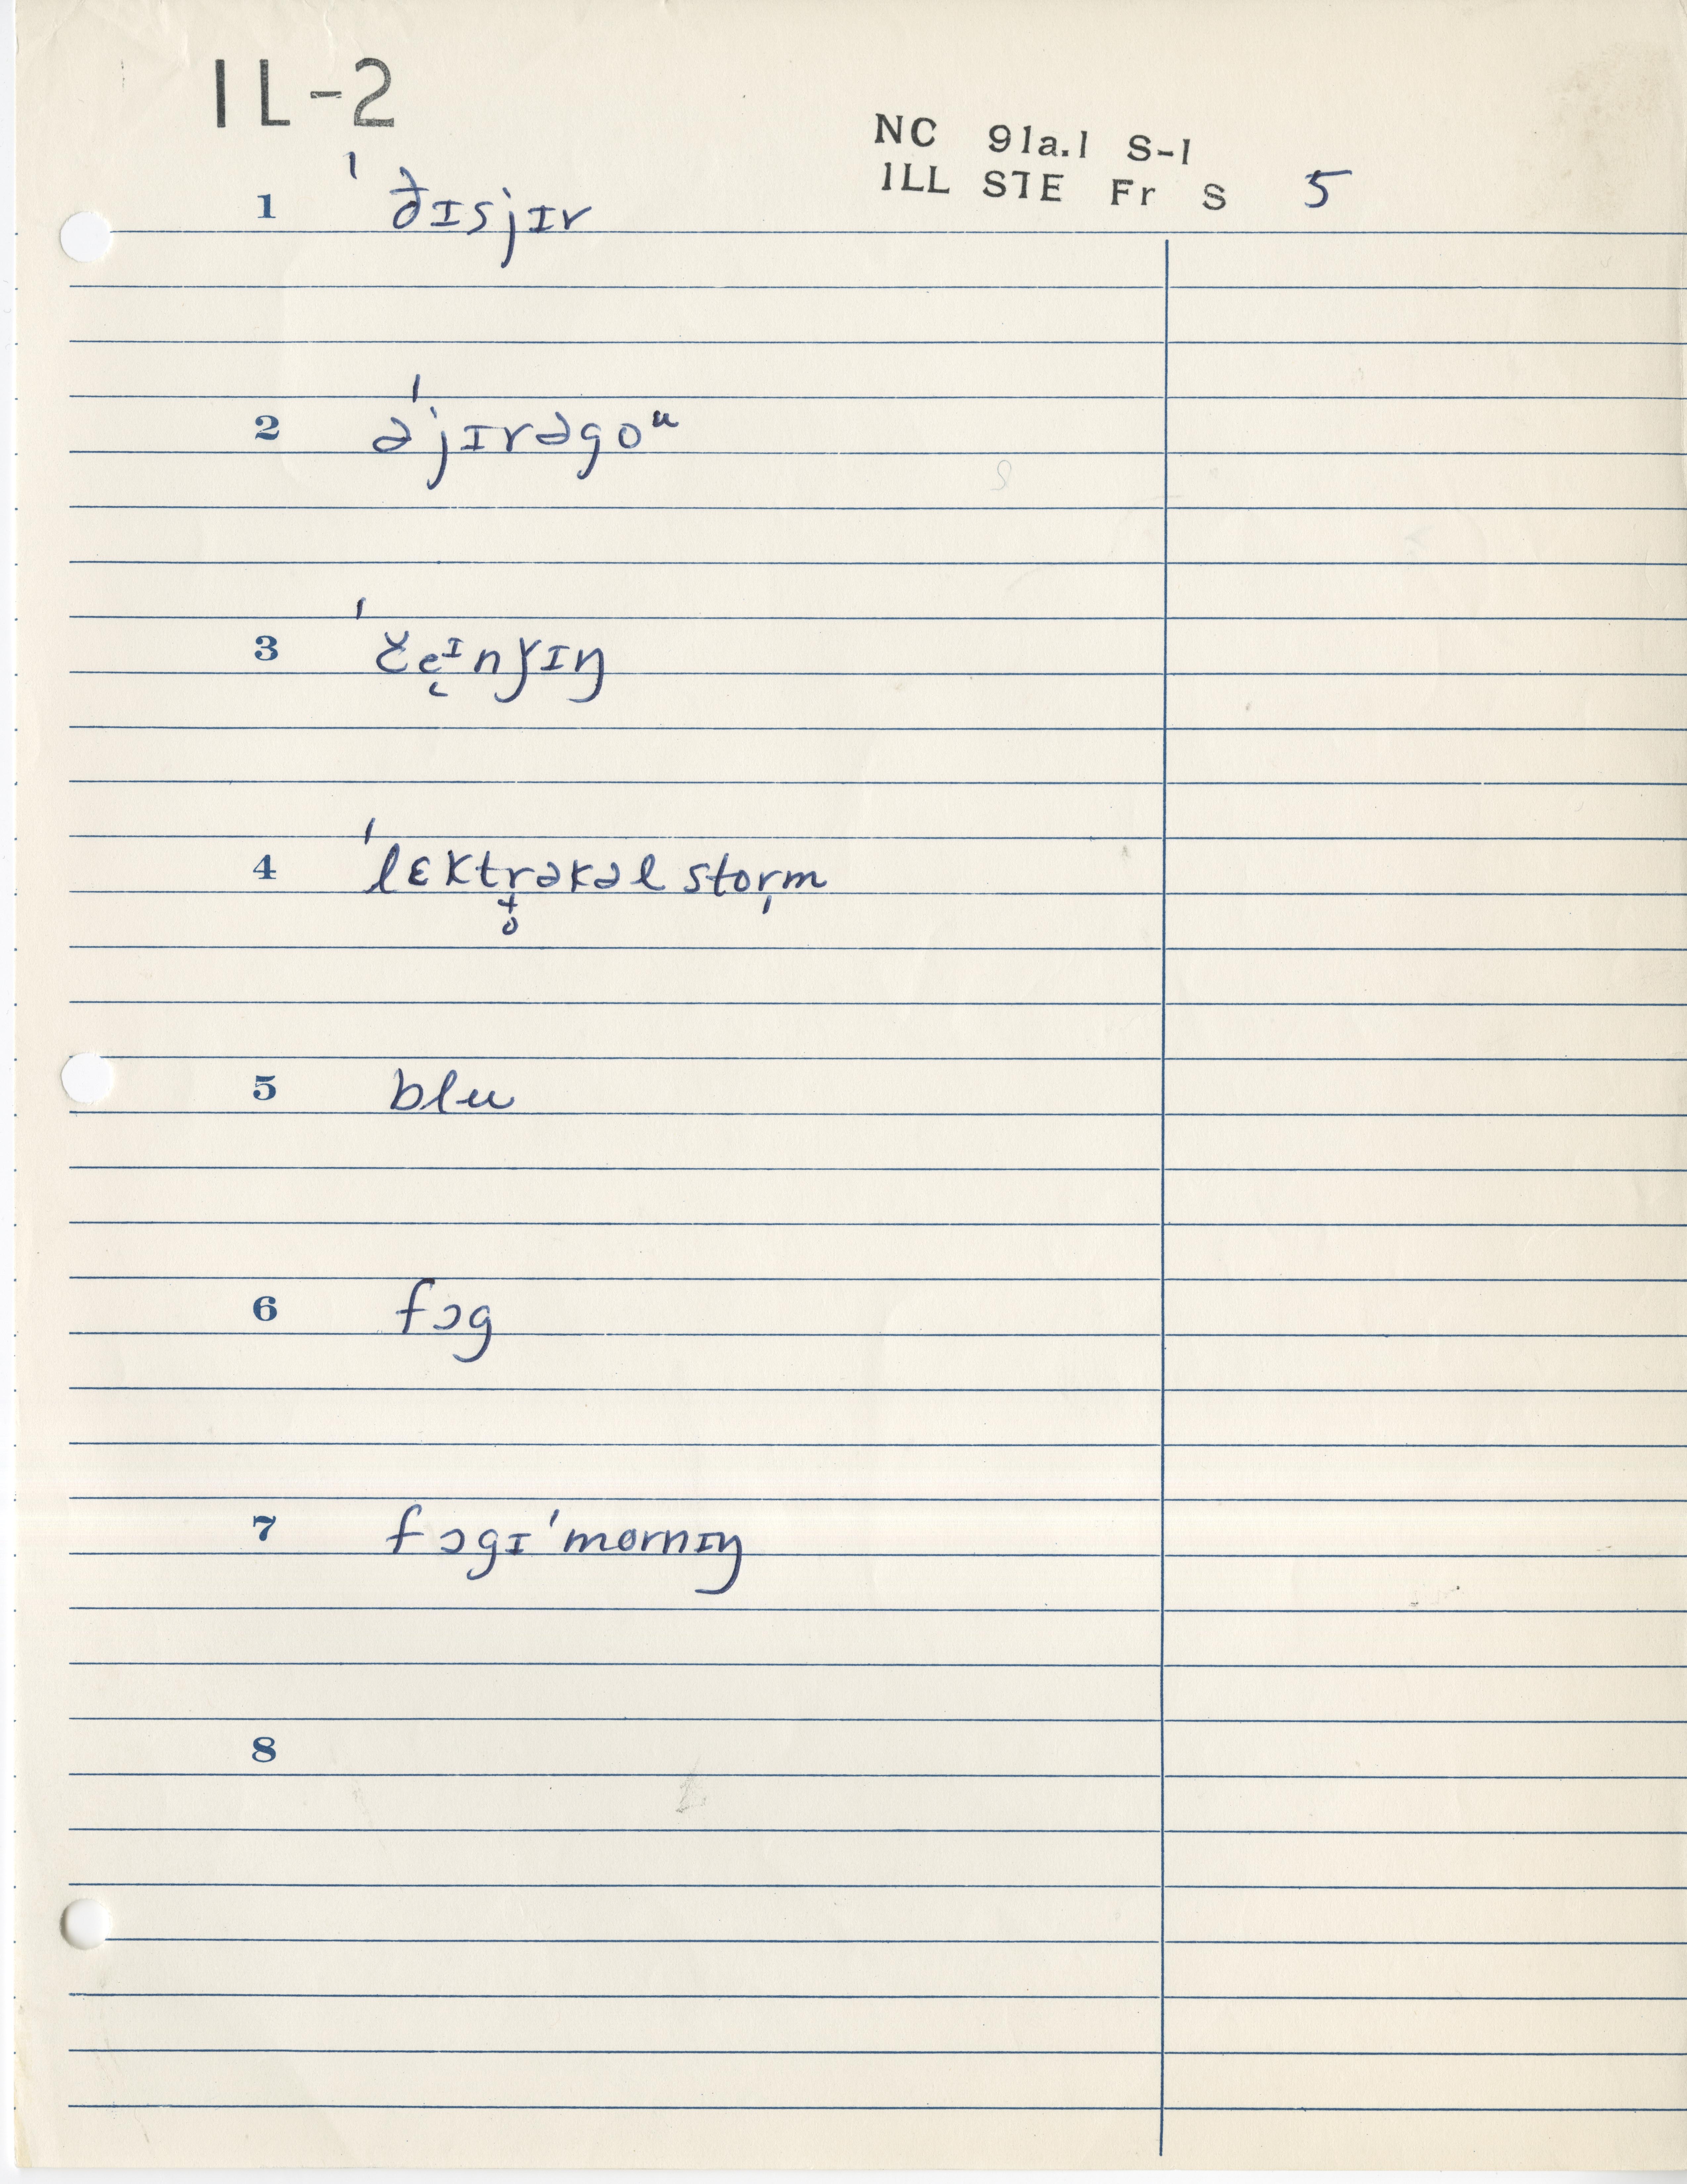 IL-2
NC 91a.1 S-1
ILL STE Fr S 5
1 ˈðɪsjɪr
2 əˈjɪrəgoᵘ
3 ˈče̜ᶦnɟɪŋ
4 ˈlɛktr̟̊əkəl stor̩m
5 blu
6 fɔg
7 fɔgɪ ˈmɵrnɪŋ
8